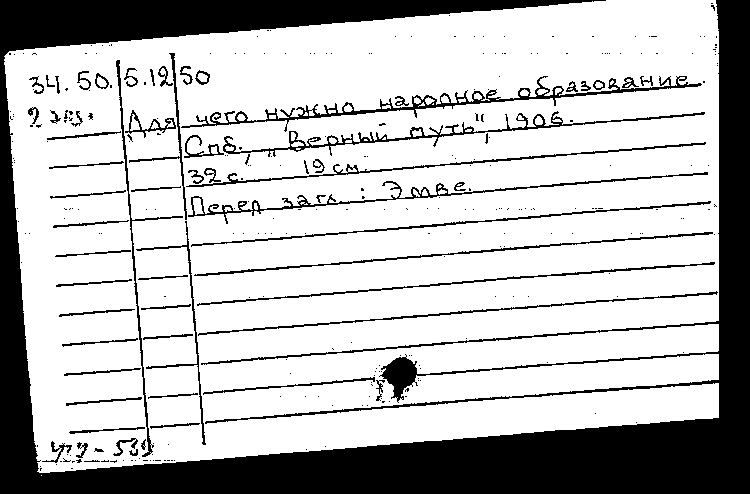 34.50.5.12 50
2 экз. Для чего нужно народное образование.
Спб., „Верный путь", 1906.
32 с. 19 см.
Перед загл.: Эмве.